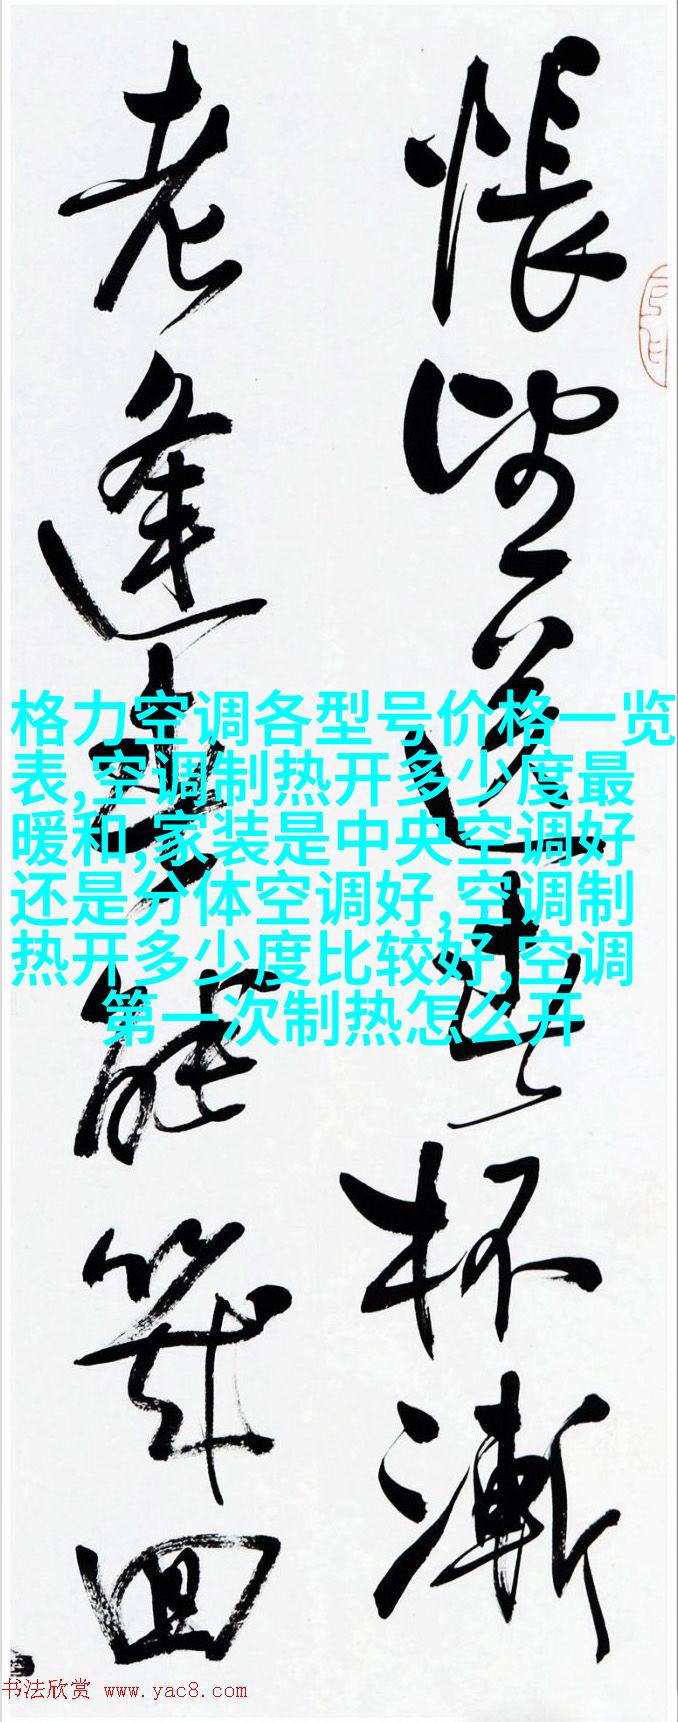 悵望送春杯漸
老逢春能幾回
格力空调各型号价格一览
表,空调制热开多少度最
暖和,家装是中央空调好
还是分体空调好,空调制
热开多少度比较好,空调
第一次制热怎么开
书法欣赏 www.yac8.com